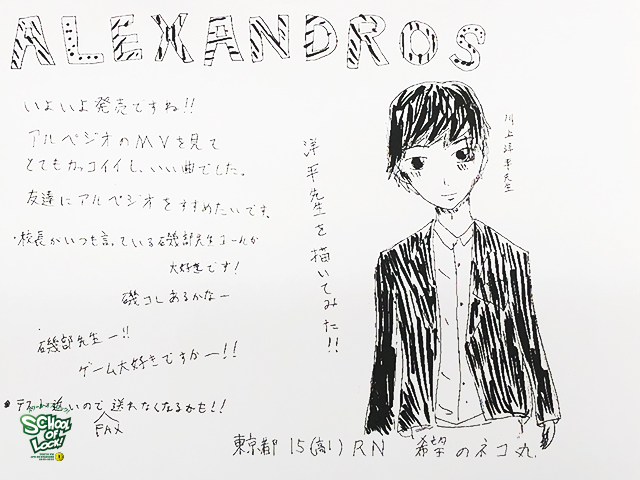 ALEXANDROS
いよいよ発売ですね!!
アルペジオのMVを見て
とてもカッコイイし、いい曲でした。
友達にアルペジオをすすめたいです。
・校長がいつも言っている磯部先生コールが
大好きです!
磯コしあるかなー
磯部先生ー!!
ゲーム大好きですかー!!
テスト近いので送れなくなるかも!!
FAX
洋平先生を描いてみた!!
川上洋平先生
SCHOOL
OF
LOCK!
東京都 15(高1) RN 希望のネコ丸